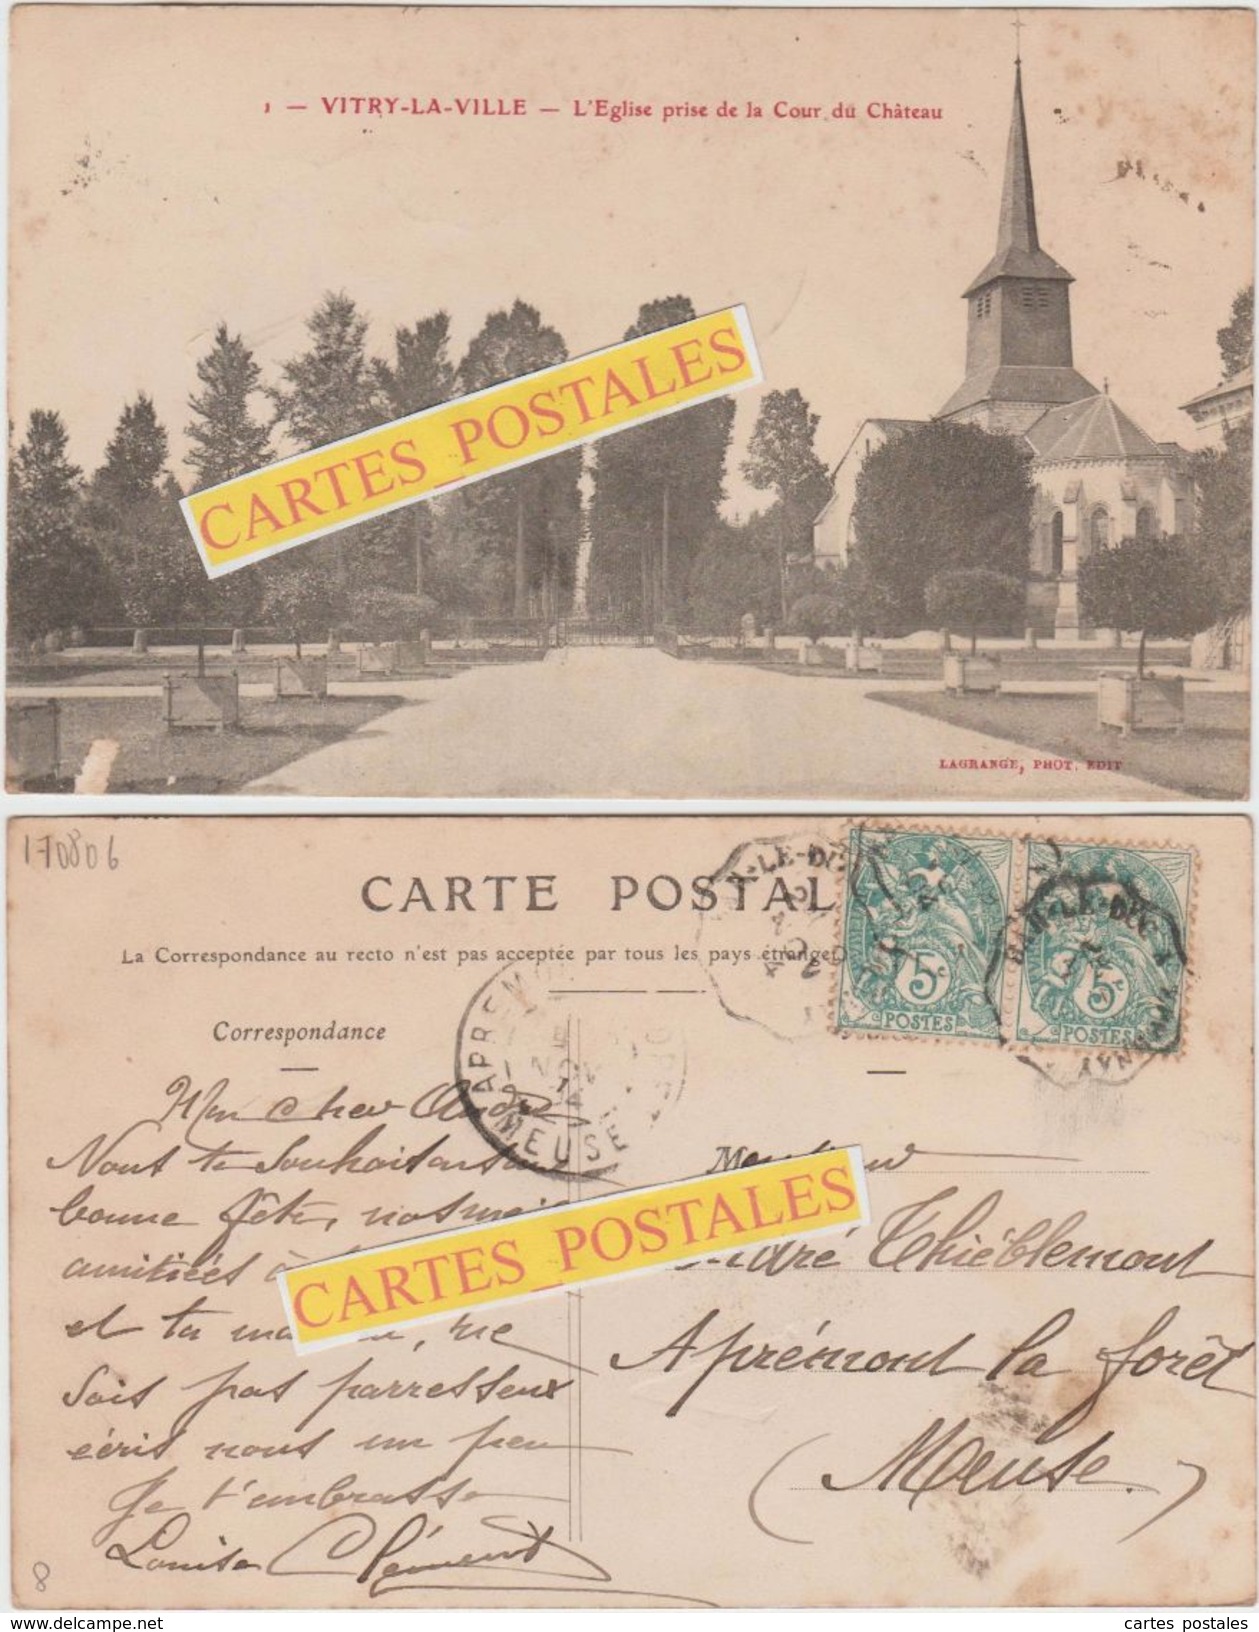 1 — VITRY-LA-VILLE — L'Eglise prise de la Cour du Château
CARTES_POSTALES
LAGRANGE, PHOT. EDIT
170806
CARTE POSTAL
La Correspondance au recto n'est pas acceptée par tous les pays étranger
Correspondance
BAR-LE-DUC
5c
POSTES
5c
POSTES
APREMONT
NOV
MEUSE
Mon cher André
Nous te souhaitons
bonne fête, nos
amitiés à
et ta, ne
sois pas parresseux
écris nous un peu
Je t'embrasse
Louise Clément
Monsieur
André Thiéblemont
Aprémont la forêt
(Meuse.)
CARTES_POSTALES
8
www.delcampe.net
cartes postales